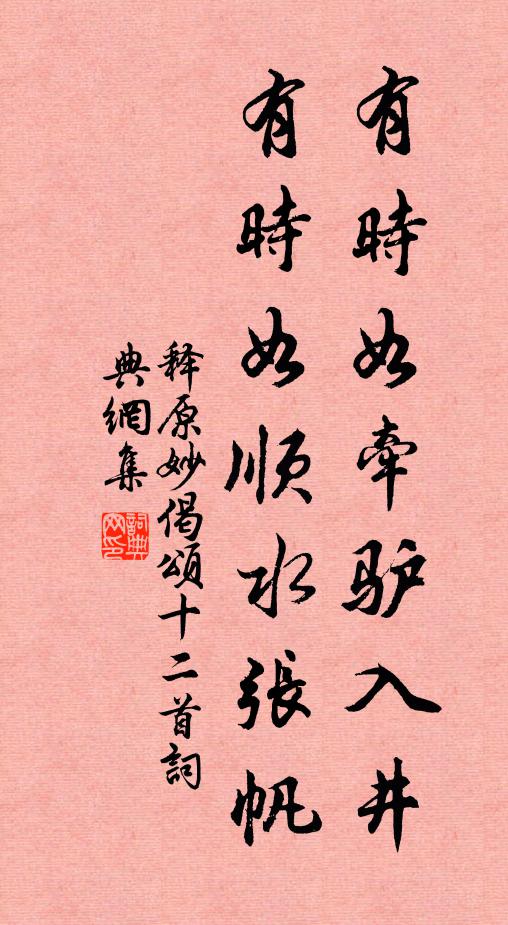 有時如牽驴入井
有時如順水張帆
释原妙偈頌十二首詞
典網集
詞典
网印